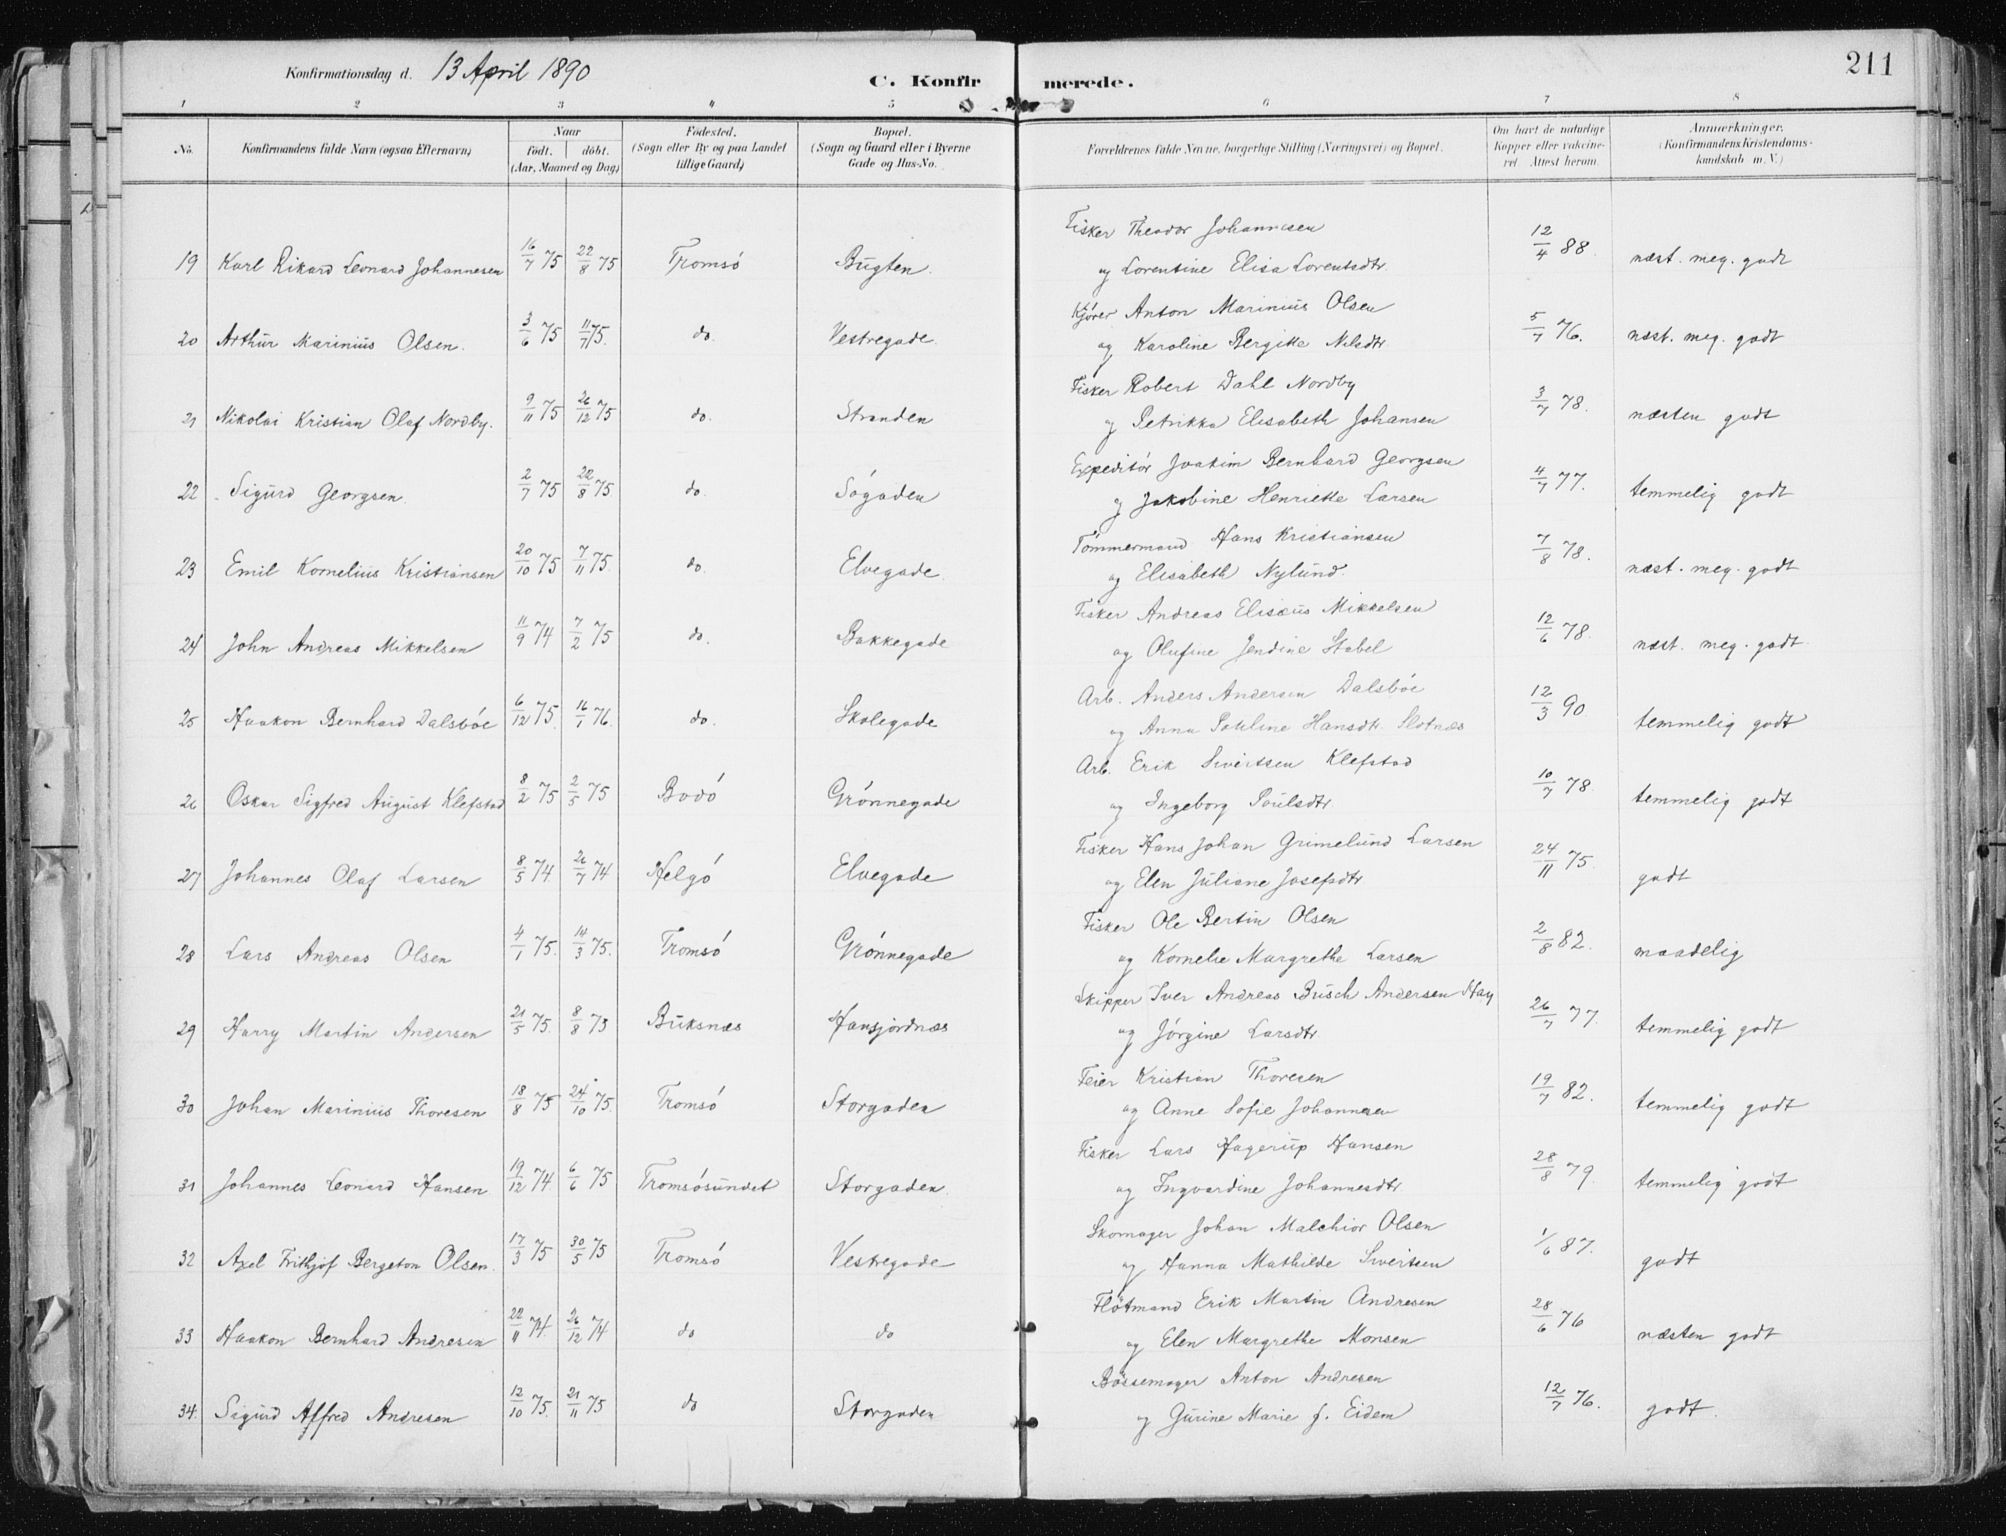 Konfirmationsdag d. 13 April 1890
C. Konfirmerede.
211
1 2 3 4 5 6 7 8
No.
Konfirmandens fulde Navn (ogsaa Efternavn)
Naar
født. døbt.
(Aar, Maaned og Dag)
Fødested.
(Sogn eller By og paa Landet
tillige Gaard)
Bopæl.
(Sogn og Gaard eller i Byerne
Gade og Hus-No.
Forældrenes fulde Navne, borgerlige Stilling (Næringsvei) og Bopæl.
Om havt de naturlige
Kopper eller vakcine-
ret. Attest herom.
Anmærkninger.
(Konfirmandens Kristendoms-
kundskab m. V.)
Fisker Theodor Johannesen
19 Karl Rikard Leonard Johannesen 16/7 75 22/8 75 Tromsø Bugten. og Lorentine Elisa Lorentsdtr. 12/4 88 næst. meg. godt
Kjører Anton Marinius Olsen
20 Arthur Marinius Olsen. 3/6 75 11/7 75. do. Vestregade. og Karoline Bergitte Nilsdtr. 5/7 76. næst. meg. godt
Fisker Robert Dahl Nordby
21 Nikolai Kristian Olaf Nordby. 9/11 75 26/12 75 do. Stranden og Petrikka Elisabeth Johansen 3/7 78. næsten godt
Expeditør Joakim Bernhard Georgsen
22 Sigurd Georgsen. 2/7 75 22/8 75. do. Søgaden og Jakobine Henriette Larsen 4/7 77. temmelig godt
Tømmermand Hans Kristiansen
23 Emil Kornelius Kristiansen 20/10 75 7/11 75. do. Elvegade. og Elisabeth Nylund. 7/8 78. næst. meg. godt
Fisker Andreas Elisæus Mikkelsen
24 John Andreas Mikkelsen 11/9 74 7/2 75 do. Bakkegade og Olufine Jendine Stabel 12/6 78. næst. meg. godt
Arb. Anders Andersen Dalsbøe
25 Haakon Bernhard Dalsbøe 6/12 75. 16/1 76. do. Skolegade og Anna Pauline Hansdtr. Slotnæs 12/3 90 temmelig godt
Arb. Erik Sivertsen Klefstad
26 Oskar Sigfred August Klefstad 8/2 75 2/5 75 Bodø Grønnegade og Ingeborg Poulsdtr. 10/7 78. temmelig godt
Fisker Hans Johan Grimelund Larsen
27 Johannes Olaf Larsen 8/5 74 26/7 74 Helgø Elvegade og Elen Juliane Josefsdtr. 24/11 75. godt
Fisker Ole Bertin Olsen
28 Lars Andreas Olsen 4/1 75. 14/3 75. Tromsø Grønnegade og Kornelie Margrethe Larsen 2/8 82. maadelig
Skipper Iver Andreas Busch Andersen Hay
29 Harry Martin Andersen 21/5 75. 8/8 75 Buksnæs Hansjordnæs og Jørgine Larsdtr. 26/7 77. temmelig godt
Feier Kristian Thoresen
30 Johan Marinius Thoresen 18/8 75 24/10 75. Tromsø Storgaden og Anne Sofie Johannesen 19/7 82. temmelig godt
Fisker Lars Hagerup Hansen
31 Johannes Leonard Hansen 19/12 74 6/6 75 Tromsøsundet Storgaden. og Ingvardine Johannesdtr. 28/8 79. temmelig godt
Skomager Johan Malchior Olsen
32 Axel Frithjof Bergeton Olsen. 17/3 75 30/5 75 Tromsø Vestregade og Hanna Mathilde Sivertsen 1/6 87. godt
Fløtmand Erik Martin Andresen
33 Haakon Bernhard Andresen 22/11 74. 26/12 74 do do og Elen Margrethe Monsen 28/6 76 næsten godt
Bøssemager Anton Andresen
34. Sigurd Alfred Andresen 12/10 75. 21/11 75 do Storgaden og Gurine Marie f. Eidem 12/7 76. godt.